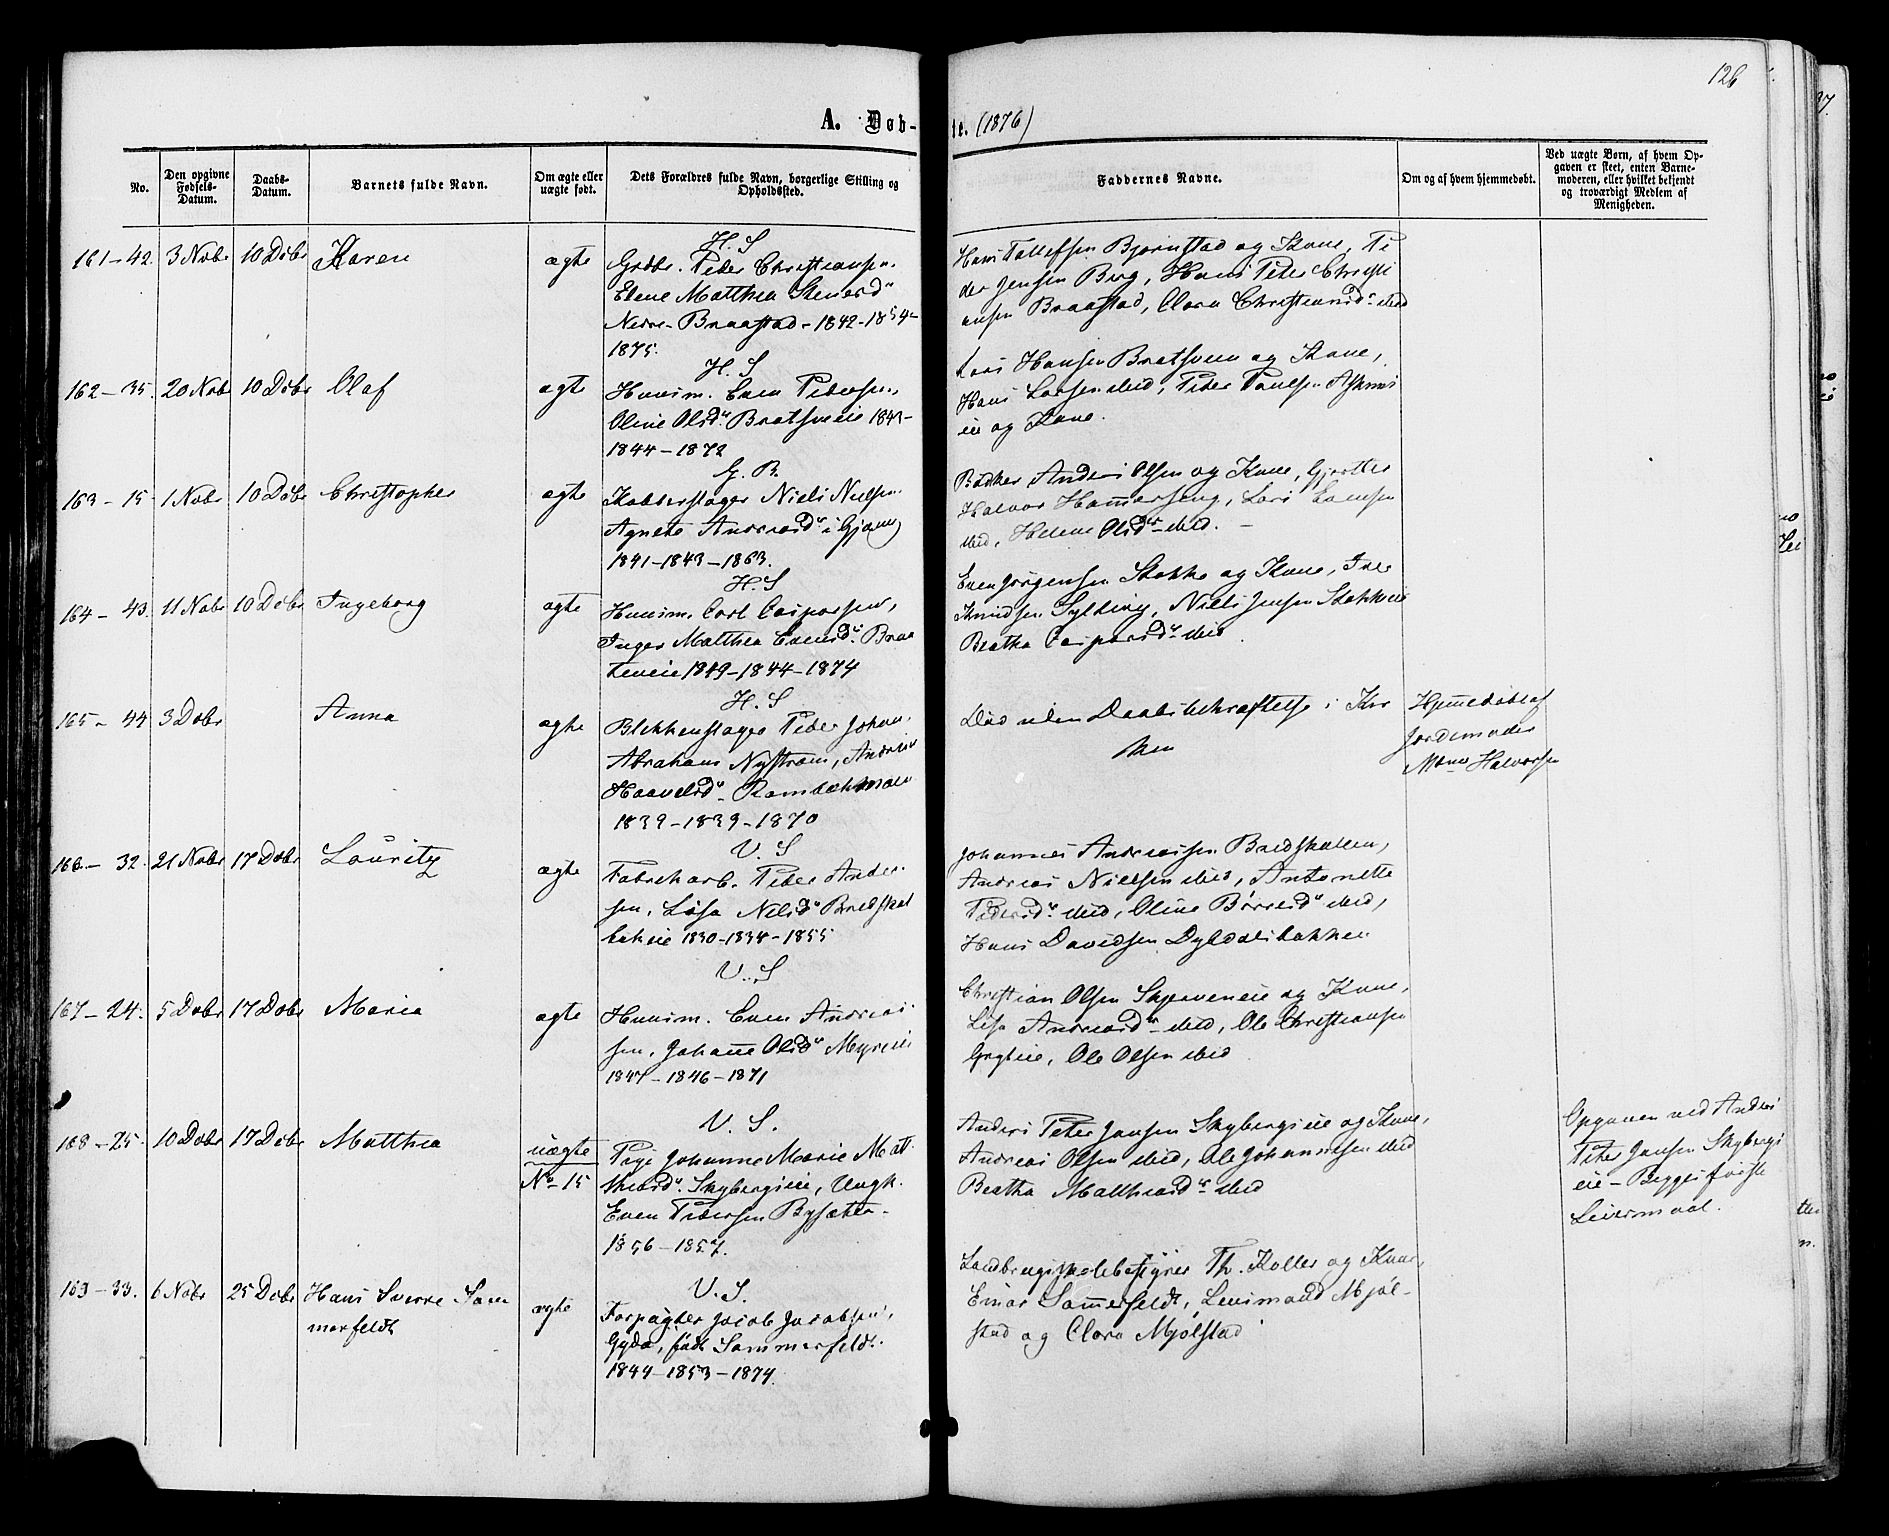 126
A. Døb-
te. (1876)
No.
Den opgivne Fødsels-Datum.
Daabs-Datum.
Barnets fulde Navn.
Om ægte eller uægte født.
Dets Forældres fulde Navn, borgerlige Stilling og Opholdssted.
Faddernes Navne.
Om og af hvem hjemmedøbt.
Ved uægte Børn, af hvem Opgaven er skeet, enten Barnemoderen, eller hvilket bekjendt og troværdigt Medlem af Menigheden.
161-42. 3 Nobr 10 Dobr Karen ægte
H. S
Grdbr. Peder Christiansen,
Elene Matthea Stenersdr
Nedre-Braastad-1842-1854-
1875.
Hans Tollefsen Bjørnstad og Kone, Pe
der Jensen Berg, Hans Peter Christi
ansen Braastad, Clara Christiansdr ibid
162-35. 20 Nobr 10 Dobr Olaf ægte
H. S
Huusm. Even Pedersen,
Oline Olsdr Bratsveeie 1843-
1844-1872
Lars Hansen Bratsveen og Kone,
Hans Larsen ibid, Peder Paulsen
eie og Kone.
163-15. 1 Nobr 10 Dobr Christopher ægte
G. B.
Kobberslager Niels Nielsen
Agnethe Andreasdr i Gjøvig
1841-1843-1863.
Bødker Anders Olsen og Kone, Gjørtler
Halvor Hammerseng, Lars Evensen
ibid, Helene Olsdr ibid. -
164-43. 11 Nobr 10 Dobr Ingeborg ægte
H. S
Huusm. Carl Caspersen,
Inger Matthea Evensdr Braa
teneie 1849-1844-1874
Even Jørgensen Stokke og Kone, Iver
Knudsen Sylding, Niels Jensen Stokkeeie
Berthe Caspersdr ibid.
165-44 3 Dobr Anna ægte
H. S
Blikkenslager Peder Johan
Abraham Nystrøm, Andrine
Haavelsdr
1839-1839-1870
Død uden Daabsbekræftelse i Kir
ken
Hjemmedøbt af
Jordemoder
Halvorsen
166-32. 21 Nobr 17 Dobr Lauritz ægte
V. S
Fabrikarb. Peder Ander-
sen, Lisa Nilsdr Bredskal
bakeie 1830-1834-1855
Johannes Andreassen Bredskallen,
Andreas Nielsen ibid, Antonette
Pedersdr ibid, Oline Børresdr ibid,
Hans Davidsen Dybdalsbakken
167-24. 5 Dobr 17 Dobr Maria ægte
V. S
Huusm. Even Andreas-
sen, Johanne Olsdr Myreeie
1847-1846-1871
Christian Olsen Skjerveneie og Kone,
Lisa Andreasdr ibid, Ole Christiansen
Ole Olsen ibid
168-25. 10 Dobr 17 Dobr Matthea uægte
No-15
V. S.
Pige Johanne Marie Mat-
hiasdr. Skybergseie, Ungk.
Even Pedersen Bysæter.
1856-1857.
Anders Peter Jansen Skybergseie og Kone,
Andreas Olsen ibid, Ole Johannesen ibid
Berthe Matthiasdr ibid
Opgaven ved Anders
Peter Jansen Skybergs
eie - Begges første
Leiermaal.
169-33. 6 Nobr 25 Dobr Hans Sverre Som
merfeldt ægte
V. S.
Forpagter Jacob Jacobsen,
Gyda, født Sommerfeldt.
1844-1853-1874.
Landbrugsskolebestyrer Th. Koller og Kone,
Einar Sommerfeldt, Lensmand Mjøl-
stad og Clara Mjølstad